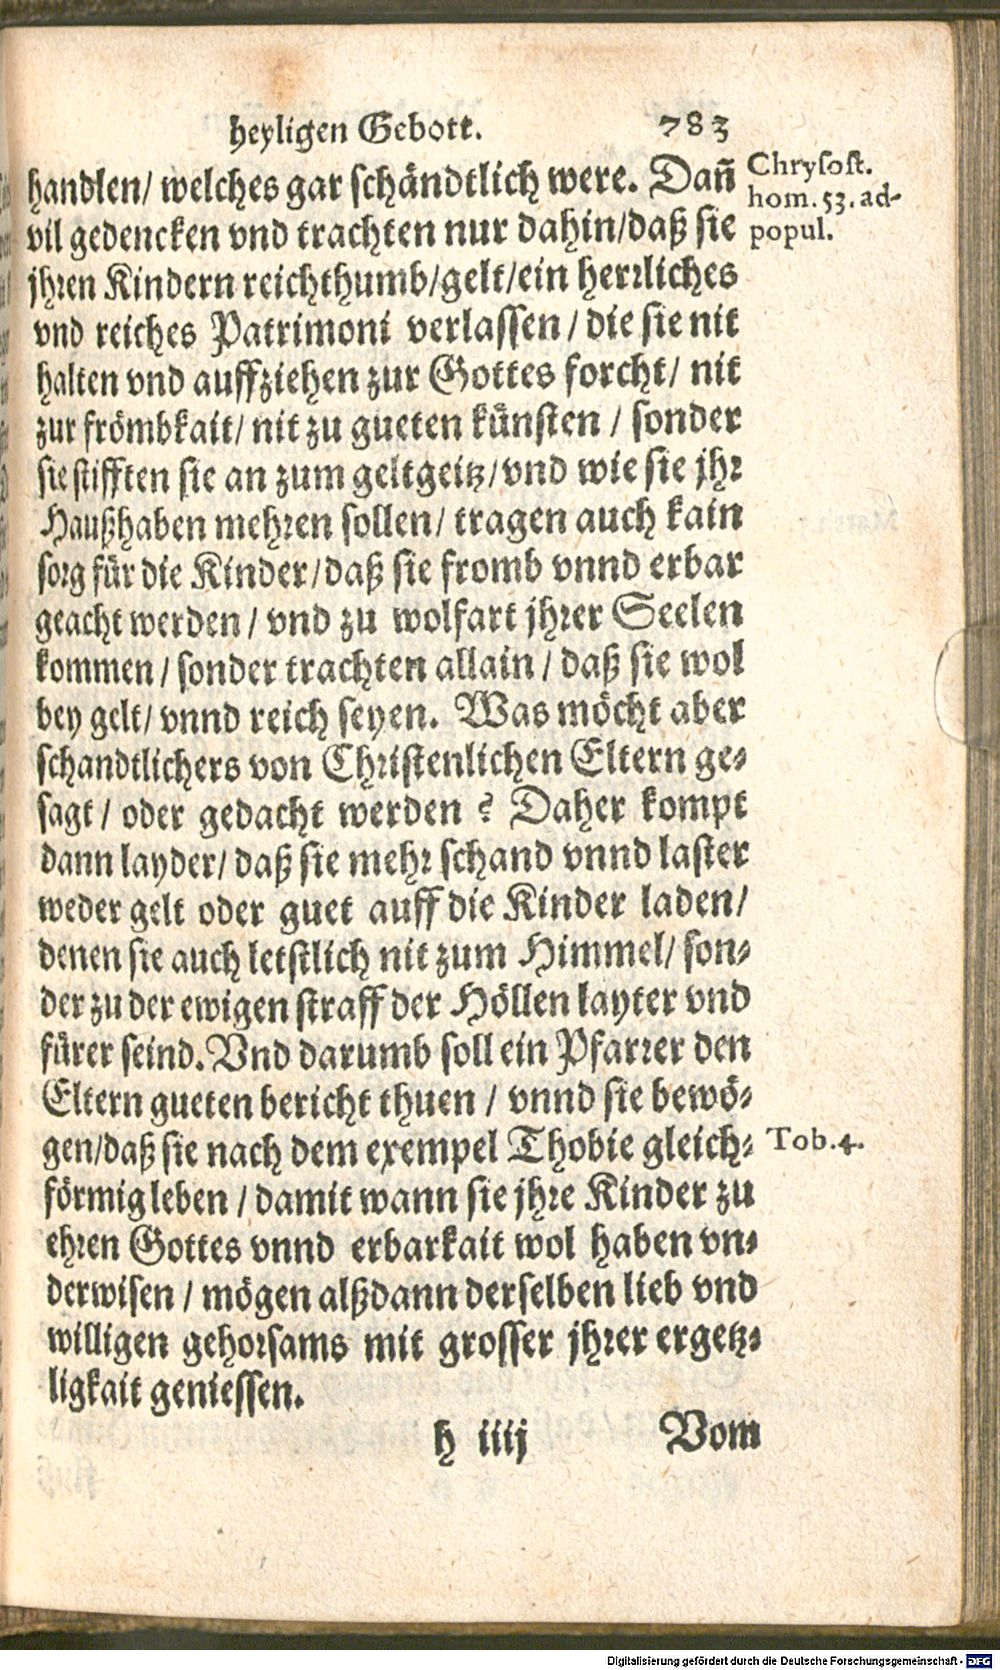 heyligen Gebott. 783
handlen/ welches gar schändtlich were. Dañ
vil gedencken vnd trachten nur dahin/daß sie
jhren Kindern reichthumb/gelt/ein herrliches
vnd reiches Patrimoni verlassen / die sie nit
halten vnd auffziehen zur Gottes forcht/ nit
zur frömbkait/ nit zu gueten künsten / sonder
sie stifften sie an zum geltgeitz/vnd wie sie jhr
Haußhaben mehren sollen/ tragen auch kain
sorg für die Kinder/daß sie fromb vnnd erbar
geacht werden / vnd zu wolfart jhrer Seelen
kommen / sonder trachten allain / daß sie wol
bey gelt/ vnnd reich seyen. Was möcht aber
schandtlichers von Christenlichen Eltern ge-
sagt / oder gedacht werden ? Daher kompt
dann layder/ daß sie mehr schand vnnd laster
weder gelt oder guet auff die Kinder laden/
denen sie auch letstlich nit zum Himmel/ son-
der zu der ewigen straff der Höllen layter vnd
fürer seind. Vnd darumb soll ein Pfarrer den
Eltern gueten bericht thuen / vnnd sie bewö-
gen/daß sie nach dem exempel Thobie gleich-
förmig leben / damit wann sie jhre Kinder zu
ehren Gottes vnnd erbarkait wol haben vn-
derwisen / mögen alßdann derselben lieb vnd
willigen gehorsams mit grosser jhrer ergetz-
ligkait geniessen.
h iiij Vom
Chrysost.
hom. 53. ad-
popul.
Tob. 4.
Digitalisierung gefördert durch die Deutsche Forschungsgemeinschaft - DFG